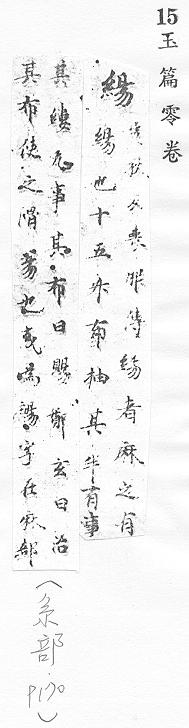 15 玉篇零卷
緆 狄反喪服傳緆者麻之有
緆也十五升布抽其半有事
其縷无事其布曰緆鄭玄曰治
其布使之滑易也或為 字在麻部
(糸部 p170)